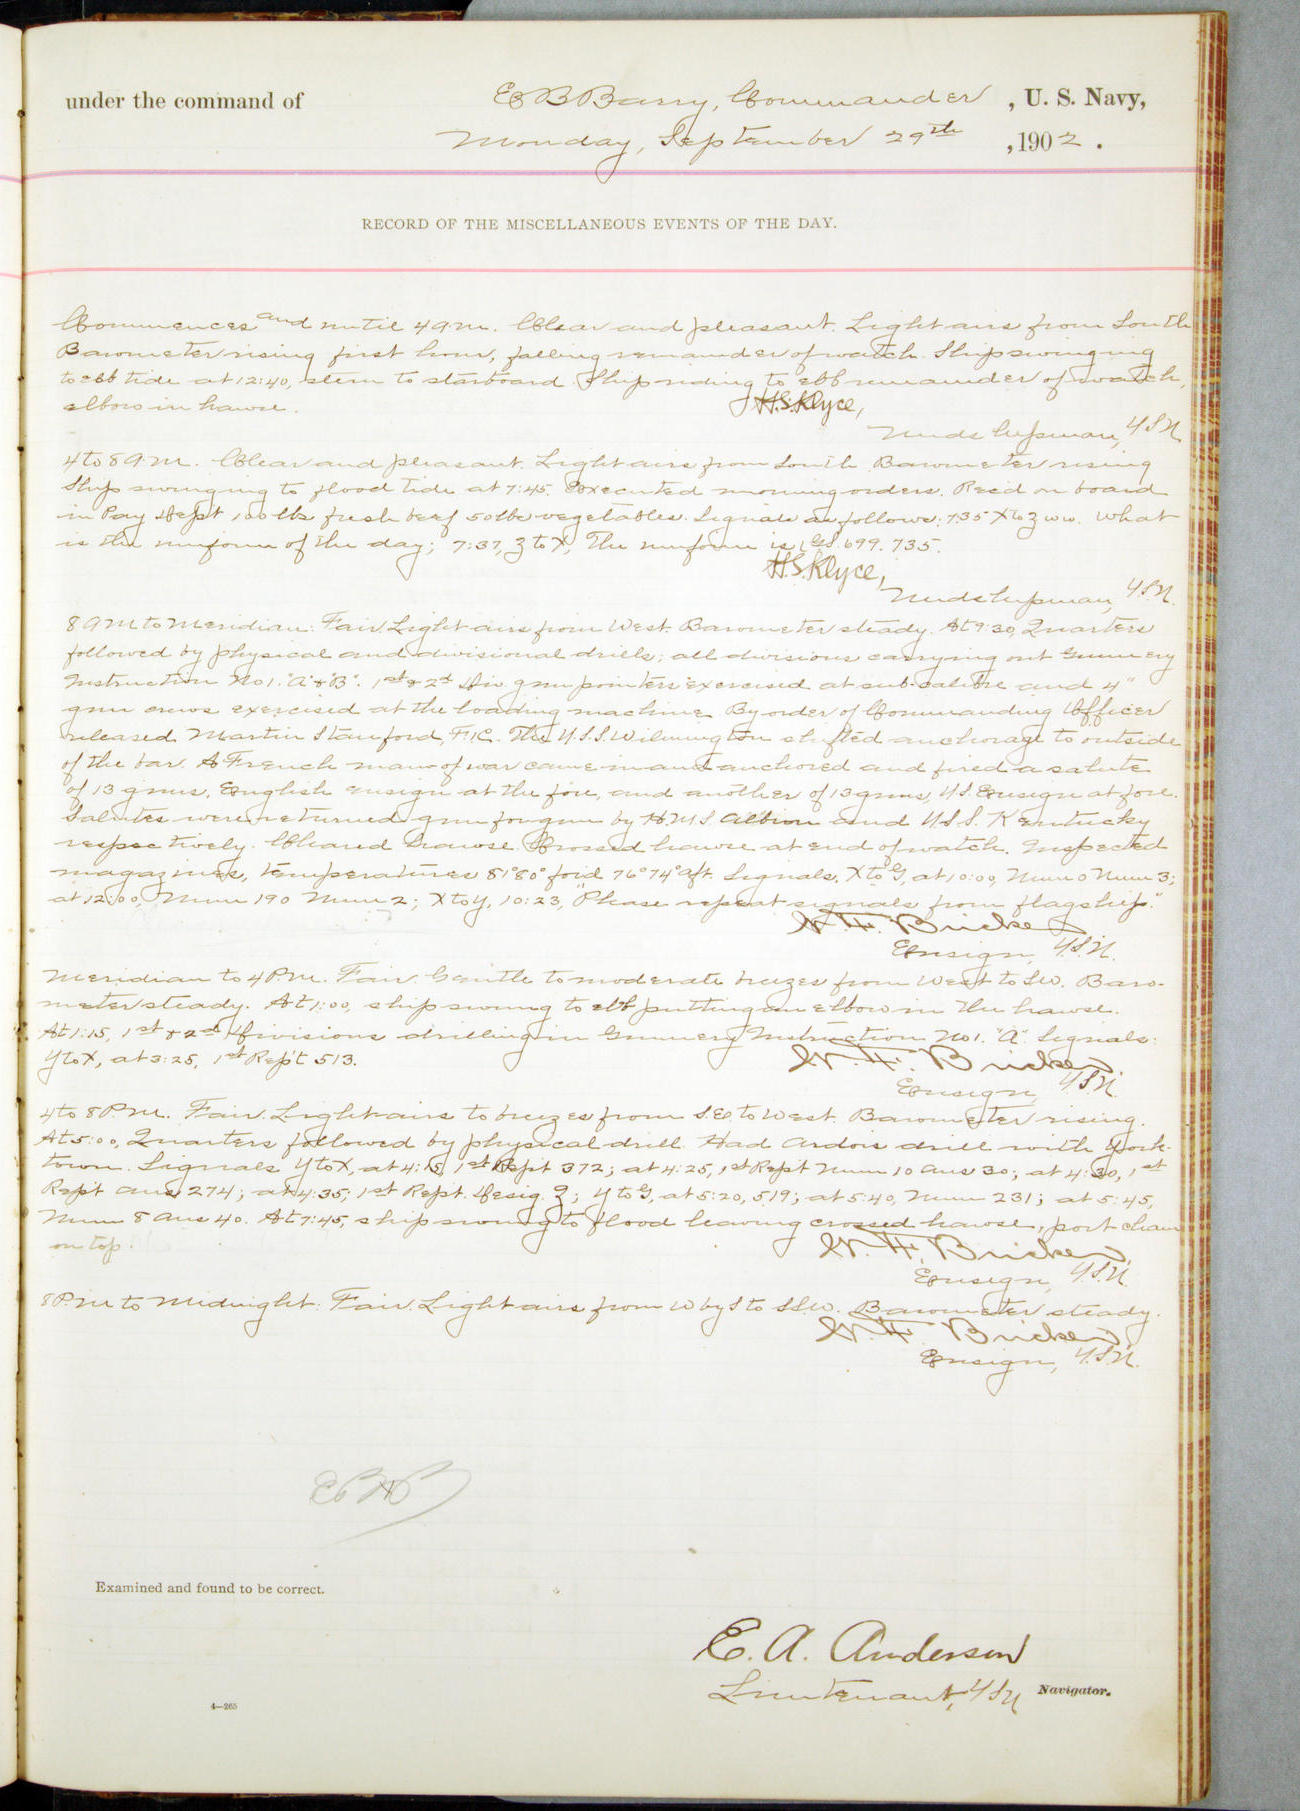 under the command of E B Barry, Commander, U. S. Navy,
Monday, September 29th, 1902.
RECORD OF THE MISCELLANEOUS EVENTS OF THE DAY.
Commences and until 4 a.m. Clear and pleasant. Light airs from South
Barometer rising first hour, falling remainder of watch. Ship swinging
to ebb tide at 12:40, stern to starboard. Ship riding to ebb remainder of watch,
elbow in hawse. H.S. Klyce,
Midshipman, U.S.N.
4 to 8 a.m. Clear and pleasant. Light airs from South. Barometer rising
Ship swinging to flood tide at 7:45. Executed morning orders. Rec'd on board
in Pay Dept 100 lbs fresh beef 50 lbs vegetables. Signals as follows: 7:35 X to Z ww. What
is the uniform of the day; 7:37, Z to X, The uniform is 699. 735.
H.S. Klyce,
Midshipman, U.S.N.
8 a.m. to Meridian: Fair. Light airs from West. Barometer steady. At 9:30, Quarters
followed by physical and divisional drills; all divisions carrying out Gunnery
Instruction No 1. "A" & "B". 1st & 2d Div. gun pointers exercised at sub-calibre and 4"
gun crews exercised at the loading machine. By order of Commanding Officer
released Martin Stanford, F.1C. The U.S.S. Wilmington shifted anchorage to outside
of the bar. A French man-of-war came in and anchored and fired a salute
of 13 guns, English ensign at the fore, and another of 13 guns, U.S. Ensign at fore.
Salutes were returned gun for gun by H.M.S Albion and U.S.S. Kentucky
respectively. Cleared hawse. Crossed hawse at end of watch. Inspected
magazines, temperatures 81° 80° for'd 76° 74° aft. Signals, X to G, at 10:00, Num 0 Num 3;
at 12:00, Num 190 Num 2; X to Y, 10:23, "Please repeat signals from flagship."
W. F. Bricker
Ensign, U.S.N.
Meridian to 4 P.M. Fair. Gentle to moderate breezes from West to SW. Baro-
meter steady. At 1:00, ship swung to ebb putting an elbow in the hawse.
At 1:15, 1st & 2nd divisions drilling in Gunnery Instruction No 1. "A" Signals:
Y to X, at 3:25, 1st Rep't 513. W. F. Bricker,
Ensign, U.S.N.
4 to 8 P.M. Fair. Light airs to breezes from S.E. to West. Barometer rising.
At 5:00, Quarters followed by physical drill. Had Ardois drill with York-
town. Signals Y to X, at 4:15, 1st Rep't 372; at 4:25, 1st Rep't Num 10 Ans 30; at 4:30, 1st
Rep't Ans 274; at 4:35, 1st Rep't. Desig. Z; Y to G, at 5:20, 519; at 5:40, Num 231; at 5:45,
Num 8 Ans 40. At 7:45, ship swung to flood leaving crossed hawse, port chain
on top. W. F. Bricker,
Ensign, U.S.N.
8 P.M. to Midnight: Fair. Light airs from W by S to SSW. Barometer steady.
W. F. Bricker,
Ensign, U.S.N.
Examined and found to be correct.
E. A. Anderson
Lieutenant, U S N Navigator.
4—265